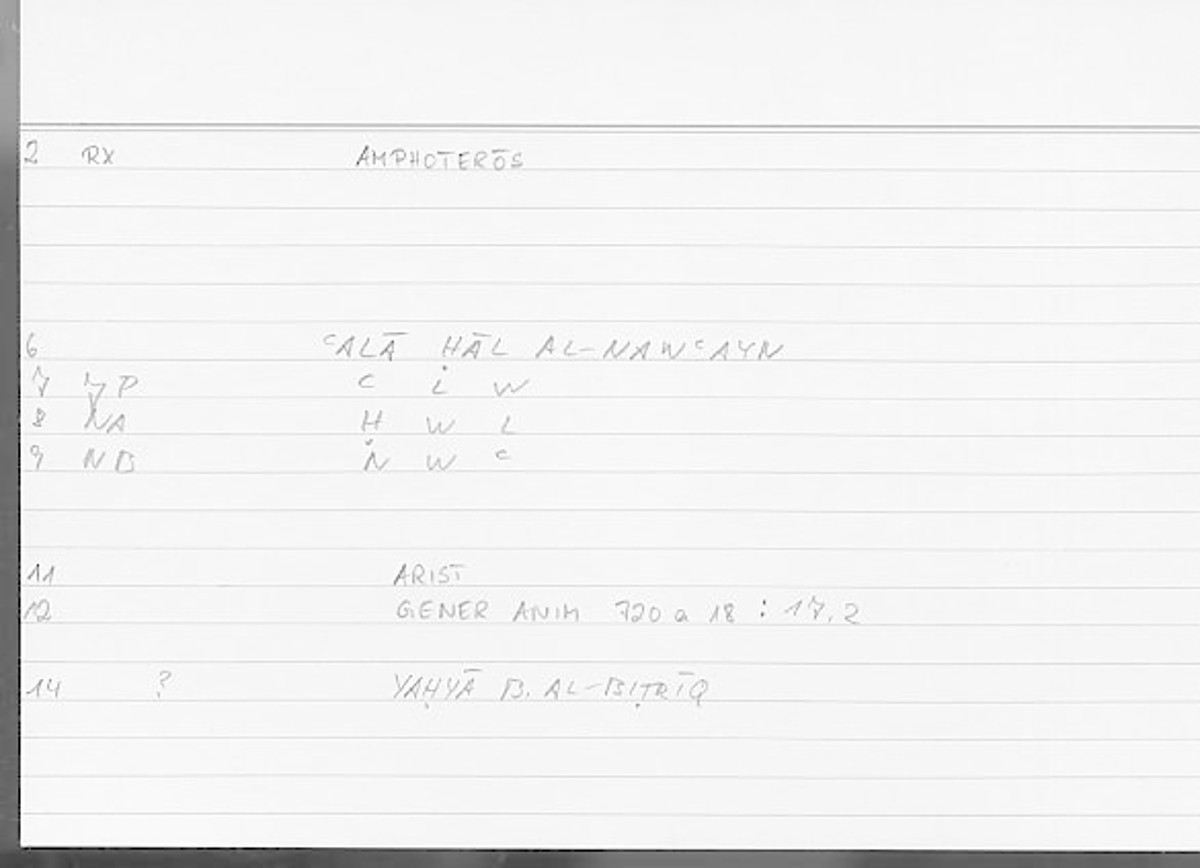 2 RX AMPHOTERŌS
6 ʿALĀ ḤĀL AL-NAWʿAYN
7 YP ʿ L W
8 NA Ḥ W L
9 NB N W ʿ
11 ARIST
12 GENER ANIM 720 a 18 : 17,2
14 ? YAḤYĀ B. AL-BIṬRĪQ